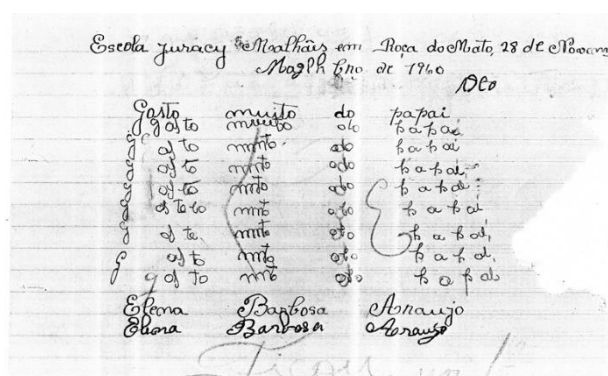 Escola Juracy Malhãis em Roça do Mato, 28 de Novem
Maglh bro de 1960
Gosto muito do papai
gosto muuito olo papai
G os to mnto oto papai
g os to mnto odo papai
g os to mnto oto papai
g os to to mnto oto papai
g os te mnto oto papai
g os to mnto oto papai
g os to mnto oto papai
Elena Barbosa Araujo
Elena Barbosa Araujo
Ficou